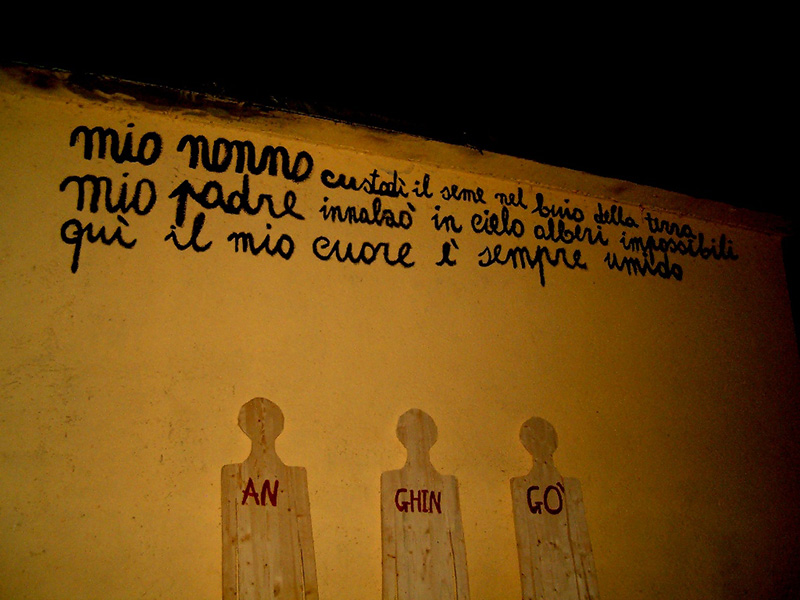 mio nonno custodì il seme nel buio della terra
mio padre innalzò in cielo alberi impossibili
quì il mio cuore è sempre umido
AN GHIN GO'